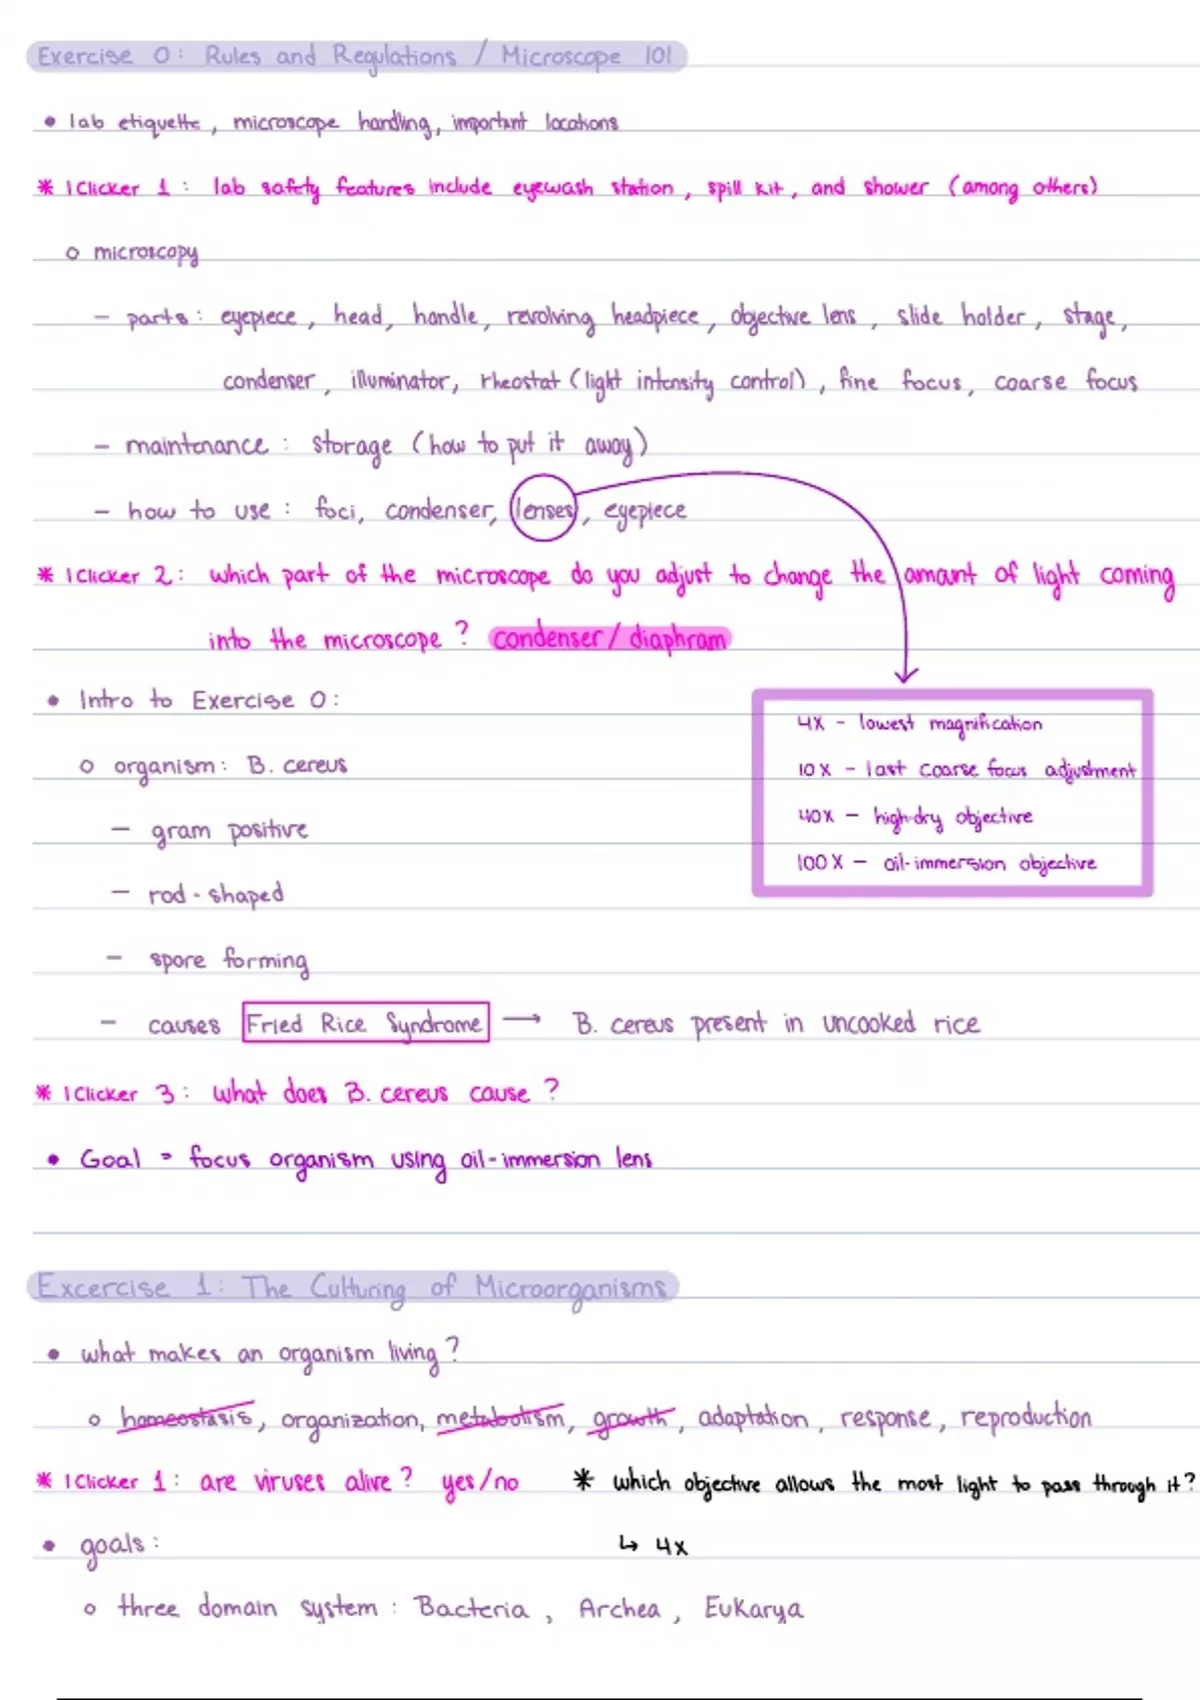 Exercise 0: Rules and Regulations / Microscope 101
• lab etiquette, microscope handling, important locations
* IClicker 1: lab safety features include eyewash station, spill kit, and shower (among others)
o microscopy
- parts: eyepiece, head, handle, revolving headpiece, objective lens, slide holder, stage,
condenser, illuminator, rheostat (light intensity control), fine focus, coarse focus
- maintenance: storage (how to put it away)
- how to use: foci, condenser, lenses, eyepiece
* IClicker 2: which part of the microscope do you adjust to change the amount of light coming
into the microscope? condenser/diaphram
• Intro to Exercise 0:
4X - lowest magnification
o organism: B. cereus
10X - last coarse focus adjustment
- gram positive
40X - high-dry objective
100X - oil-immersion objective
- rod-shaped
- spore forming
- causes Fried Rice Syndrome → B. cereus present in uncooked rice
* IClicker 3: what does B. cereus cause?
• Goal = focus organism using oil-immersion lens
Excercise 1: The Culturing of Microorganisms
• what makes an organism living?
o homeostasis, organization, metabolism, growth, adaptation, response, reproduction
* IClicker 1: are viruses alive? yes/no * which objective allows the most light to pass through it?
• goals: ↳ 4x
o three domain system: Bacteria, Archea, Eukarya